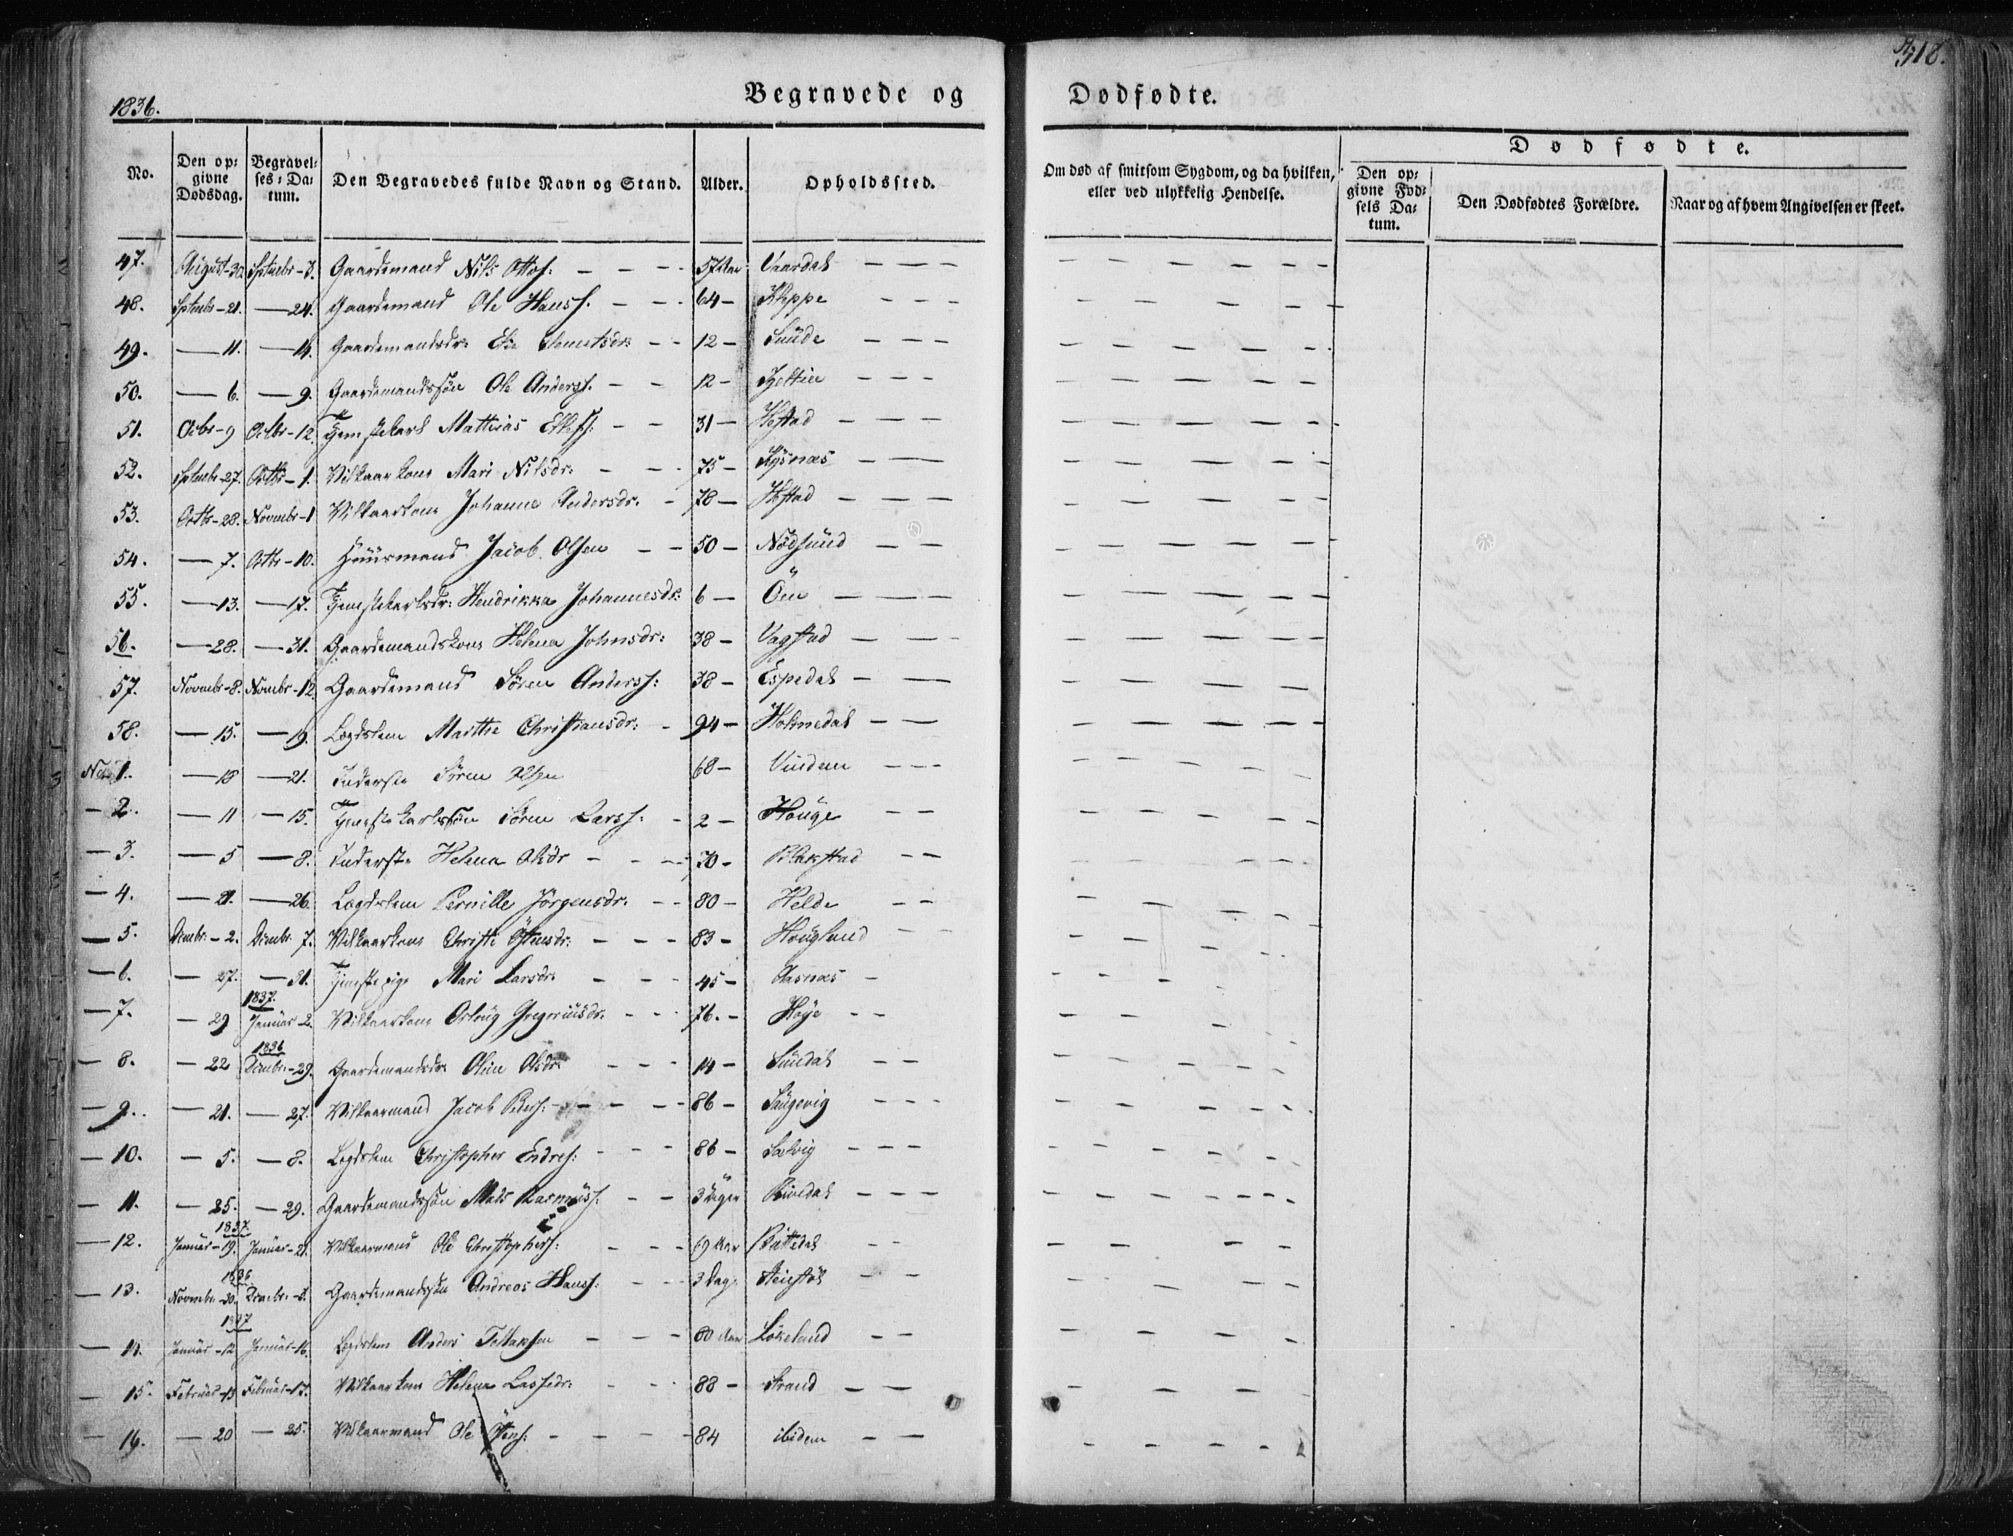 1836.
Begravede og Dødfødte.
318.
No.
Den opgivne Dødsdag.
Begravelses-Datum.
Den Begravedes fulde Navn og Stand.
Alder.
Opholdssted.
Om død af smitsom Sygdom, og da hvilken, eller ved ulykkelig Hendelse.
Dødfødte.
Den opgivne Fødsels Datum.
Den Dødfødtes Forældre.
Naar og af hvem Angivelsen er skeet.
47. August-30 Septmbr-3. Gaardemand Nils Ottos: — — — 57 Aar Vaardal — — —
48. Septmbr-21. —24. Gaardemand Ole Hanss. — — — 64 — Kleppe — — —
49. — 11. — 14. Gaardemandsdr: — — 12 — Sunde — — —
50. — 6. — 9. Gaardemandssøn Ole Anderss. — — 12 — — — —
51. Octbr-9 Octbr-12. Tjenestekarl Matthias — — 31 — Hestad — — —
52. Septmbr-27. Octbr-1. Vilkaarkone Mari Nilsdr: — — 75 — — —
53. Octbr-28. Novmbr-1 Vilkaarkone Johanne Andersdr. — 78 — Hestad — — —
54. — 7. Octbr-10. Huusmand Jacob Olsen — — 50 — Nødsund — —
55. — 13. — 17. Tjenestekarlsdr: Hendrikka Johannesdr: 6 — Öen — — —
56. — 28. — 31. Gaardemandskone Helena Johnsdr: 38 — Vagstad — — —
57. Novmbr-8. Novmbr-12. Gaardemand Sören Anderss: 38 — Espedal — —
58. — 15. — 19. Lægdslem Marthe Christiansdr: — 94 — Holmedal — —
1. — 18 — 21. Inderste Sören Olsen 68 — — — —
— 2. — 11 — 15. Tjenestekarlssøn Sören Larss: — 2 — Houge — —
— 3. — 5 — 8. Inderste Helena Olsdr — — — 30 — Blakstad — —
— 4. — 21. — 26. Lægdslem Pernille Jörgensdr. — — 80 — Helde — —
— 5. Dcmbr. - 2. Dcmbr. 7. Vilkaarkone Christi — — — 83 — Houglund — —
— 6. — 27. — 31. Tjenestepige Mari Larsdr: — — — 45 — Aasnæs —
1837.
— 7. — 29 Januar-2. Vilkaarkone Gregoriusdr. — — — 76. — Høye — —
1836
— 8. — 22 Dcmbr-29. Gaardemandsdr: Oline Olsdr: — — 14 — — — —
— 9. — 21. — 27. Vilkaarmand Jacob Peders: — — — — 86 — Saugevig — — —
— 10. — 5. — 8. Legdslem Christopher Endres: — — — 86 — Salvig — — —
— 11. — 25. — 29. Gaardemandssøn Mads Rasmuss: — — 3 Uger Rivedal — — —
1837.
— 12. Januar-19. Januar-21. Vilkaarmand Ole Christophers: — — 69 Aar — —
1836
— 13. Novmbr-30. Dcmbr- Gaardemandssøn Andreas Hanss: — — — 3 Dage — —
1837
— 14. Januar-12 Januar-16. Legdslem Anders — — — 80 Aar Lökeland — —
— 15. Februar-13 Februar-17. Vilkaarkone Helena Lassedr: — — — 88 — Strand — —
— 16. — 20 — 25. Vilkaarmand Ole — — — — 84 ibidem — —